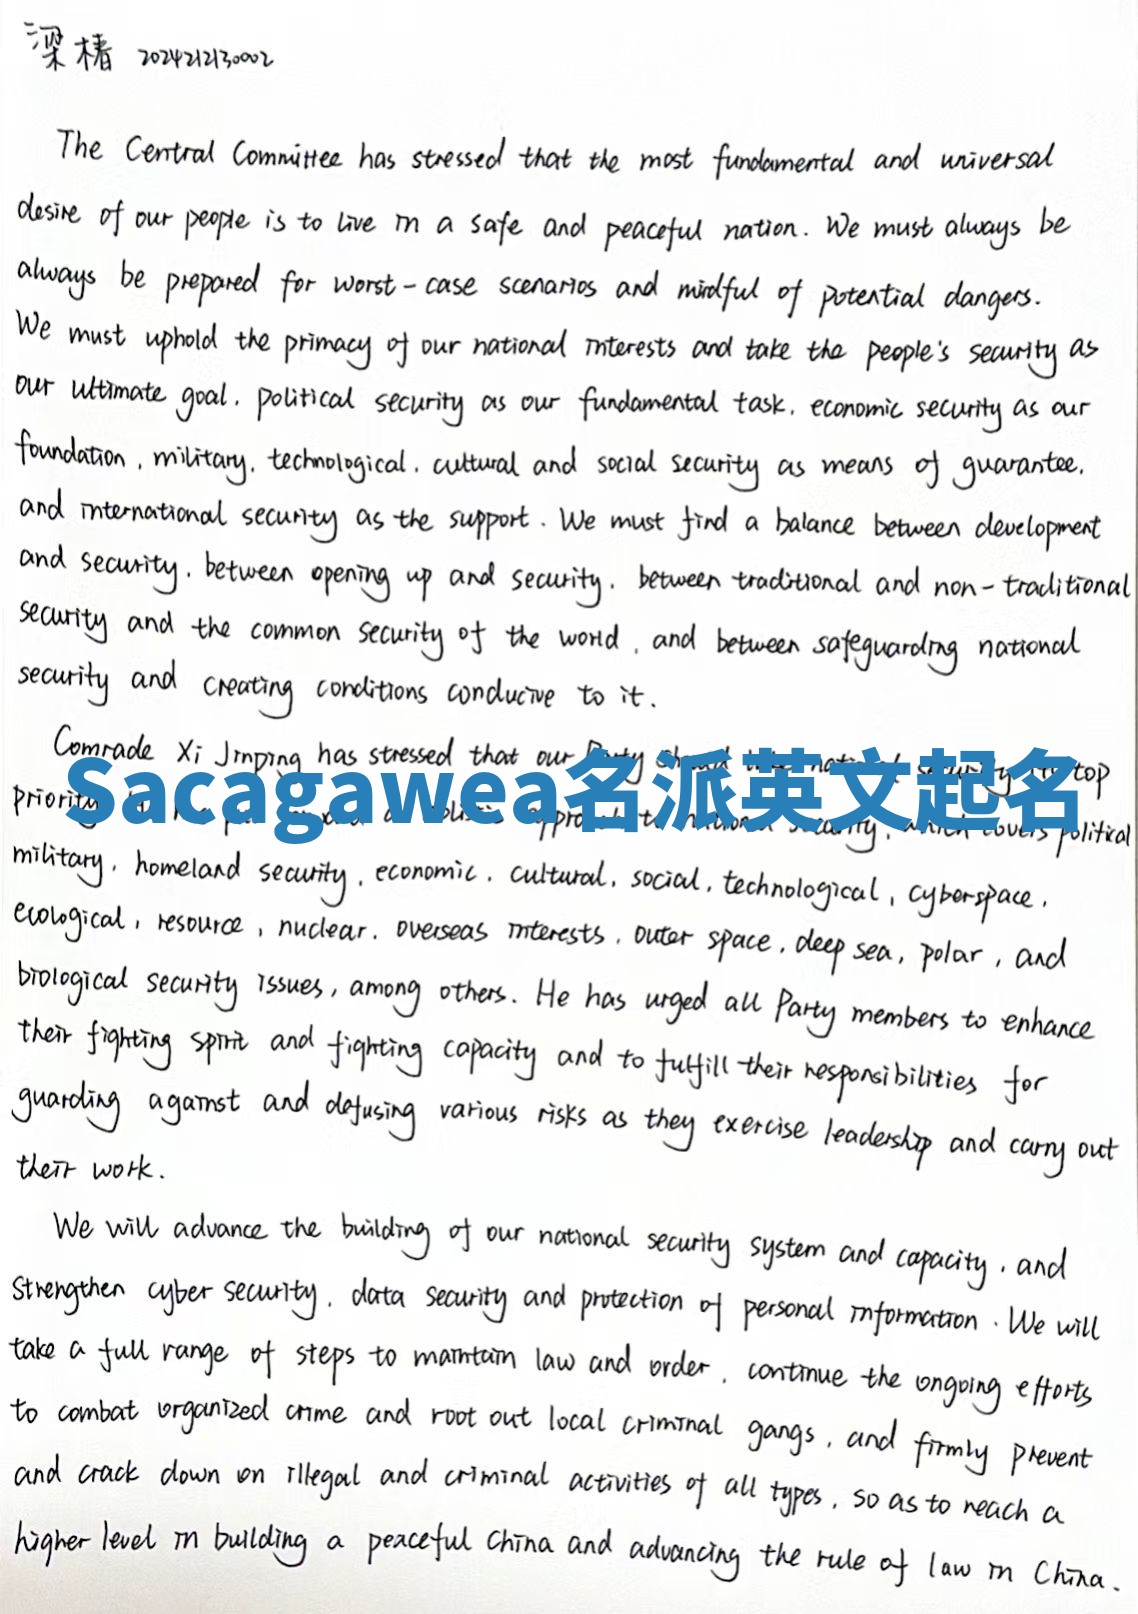 梁椿 2024212130002
The Central Committee has stressed that the most fundamental and universal
desire of our people is to live in a safe and peaceful nation. We must always be
always be prepared for worst-case scenarios and mindful of potential dangers.
We must uphold the primacy of our national interests and take the people's security as
our ultimate goal, political security as our fundamental task, economic security as our
foundation, military, technological, cultural and social security as means of guarantee,
and international security as the support. We must find a balance between development
and security, between opening up and security, between traditional and non-traditional
security and the common security of the world, and between safeguarding national
security and creating conditions conducive to it.
Comrade Xi Jinping has stressed that our Party should national security top
Sacagawea名派英文起名
priority to national security, which covers political
military, homeland security, economic, cultural, social, technological, cyberspace,
ecological, resource, nuclear, overseas interests, outer space, deep sea, polar, and
biological security issues, among others. He has urged all Party members to enhance
their fighting spirit and fighting capacity and to fulfill their responsibilities for
guarding against and defusing various risks as they exercise leadership and carry out
their work.
We will advance the building of our national security system and capacity, and
strengthen cyber security, data security and protection of personal information. We will
take a full range of steps to maintain law and order, continue the ongoing efforts
to combat organized crime and root out local criminal gangs, and firmly prevent
and crack down on illegal and criminal activities of all types, so as to reach a
higher level in building a peaceful China and advancing the rule of law in China.